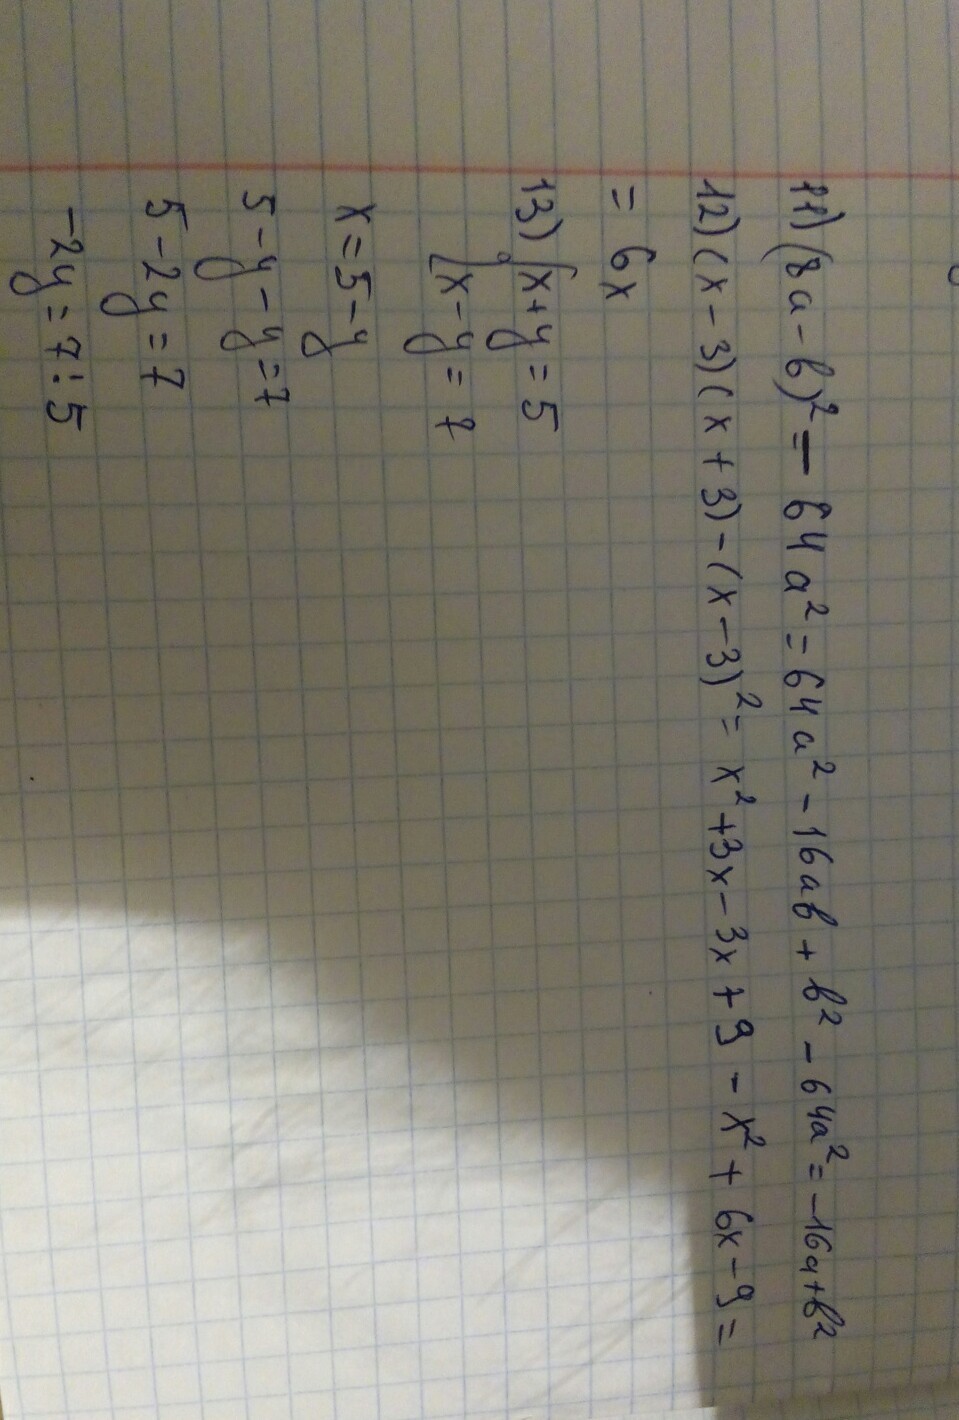 11) (8a - b)² - 64a² = 64a² - 16ab + b² - 64a² = -16a + b²
12) (x - 3)(x + 3) - (x - 3)² = x² + 3x - 3x + 9 - x² + 6x - 9 =
= 6x
13) { x + y = 5
{ x - y = 7
x = 5 - y
5 - y - y = 7
5 - 2y = 7
-2y = 7 : 5